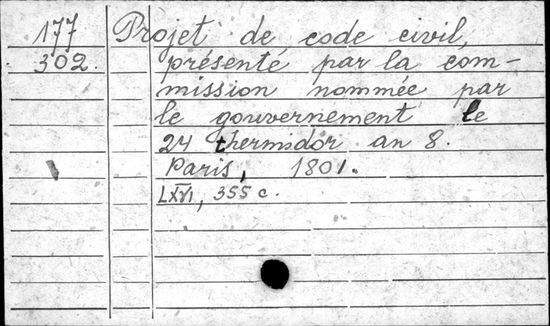 177 Projet de code civil,
302. présenté par la com-
mission nommée par
le gouvernement le
24 thermidor an 8.
Paris, 1801.
LXVI, 355 c.